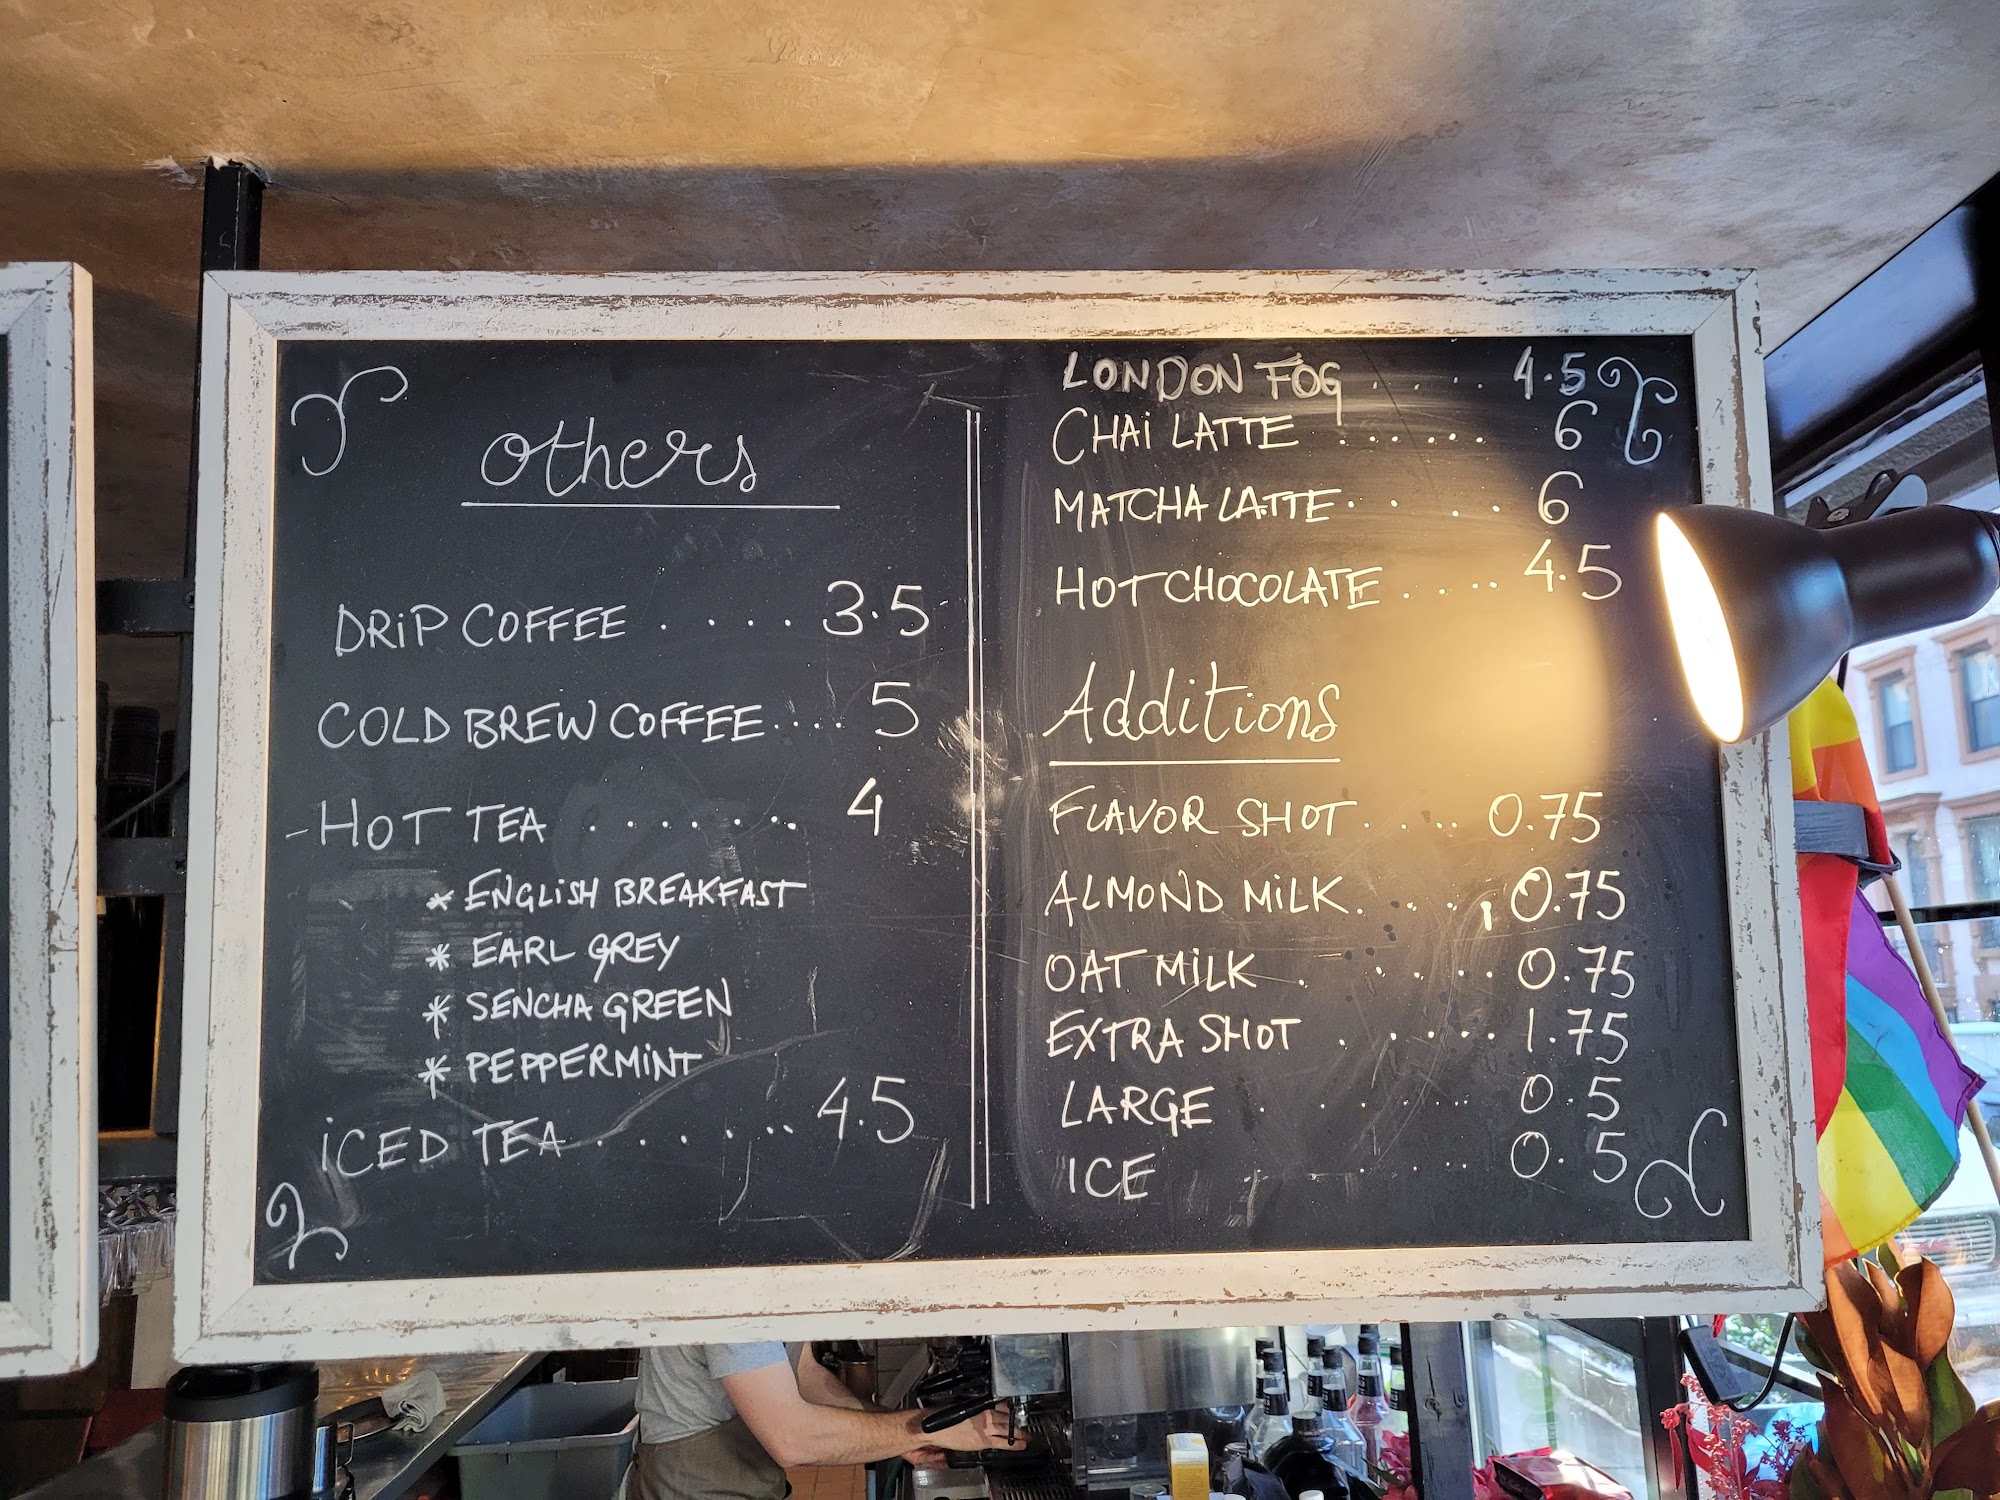 Others
DRIP COFFEE . . . . . 3.5
COLD BREW COFFEE . . . . 5
- HOT TEA . . . . . . . 4
* ENGLISH BREAKFAST
* EARL GREY
* SENCHA GREEN
* PEPPERMINT
ICED TEA . . . . . . . 4.5
LONDON FOG . . . . . 4.5
CHAI LATTE . . . . . . 6
MATCHA LATTE . . . . . 6
HOT CHOCOLATE . . . . . 4.5
Additions
FLAVOR SHOT . . . . 0.75
ALMOND MILK . . . . 0.75
OAT MILK . . . . . 0.75
EXTRA SHOT . . . . . . 1.75
LARGE . . . . . . 0.5
ICE . . . . . . 0.5